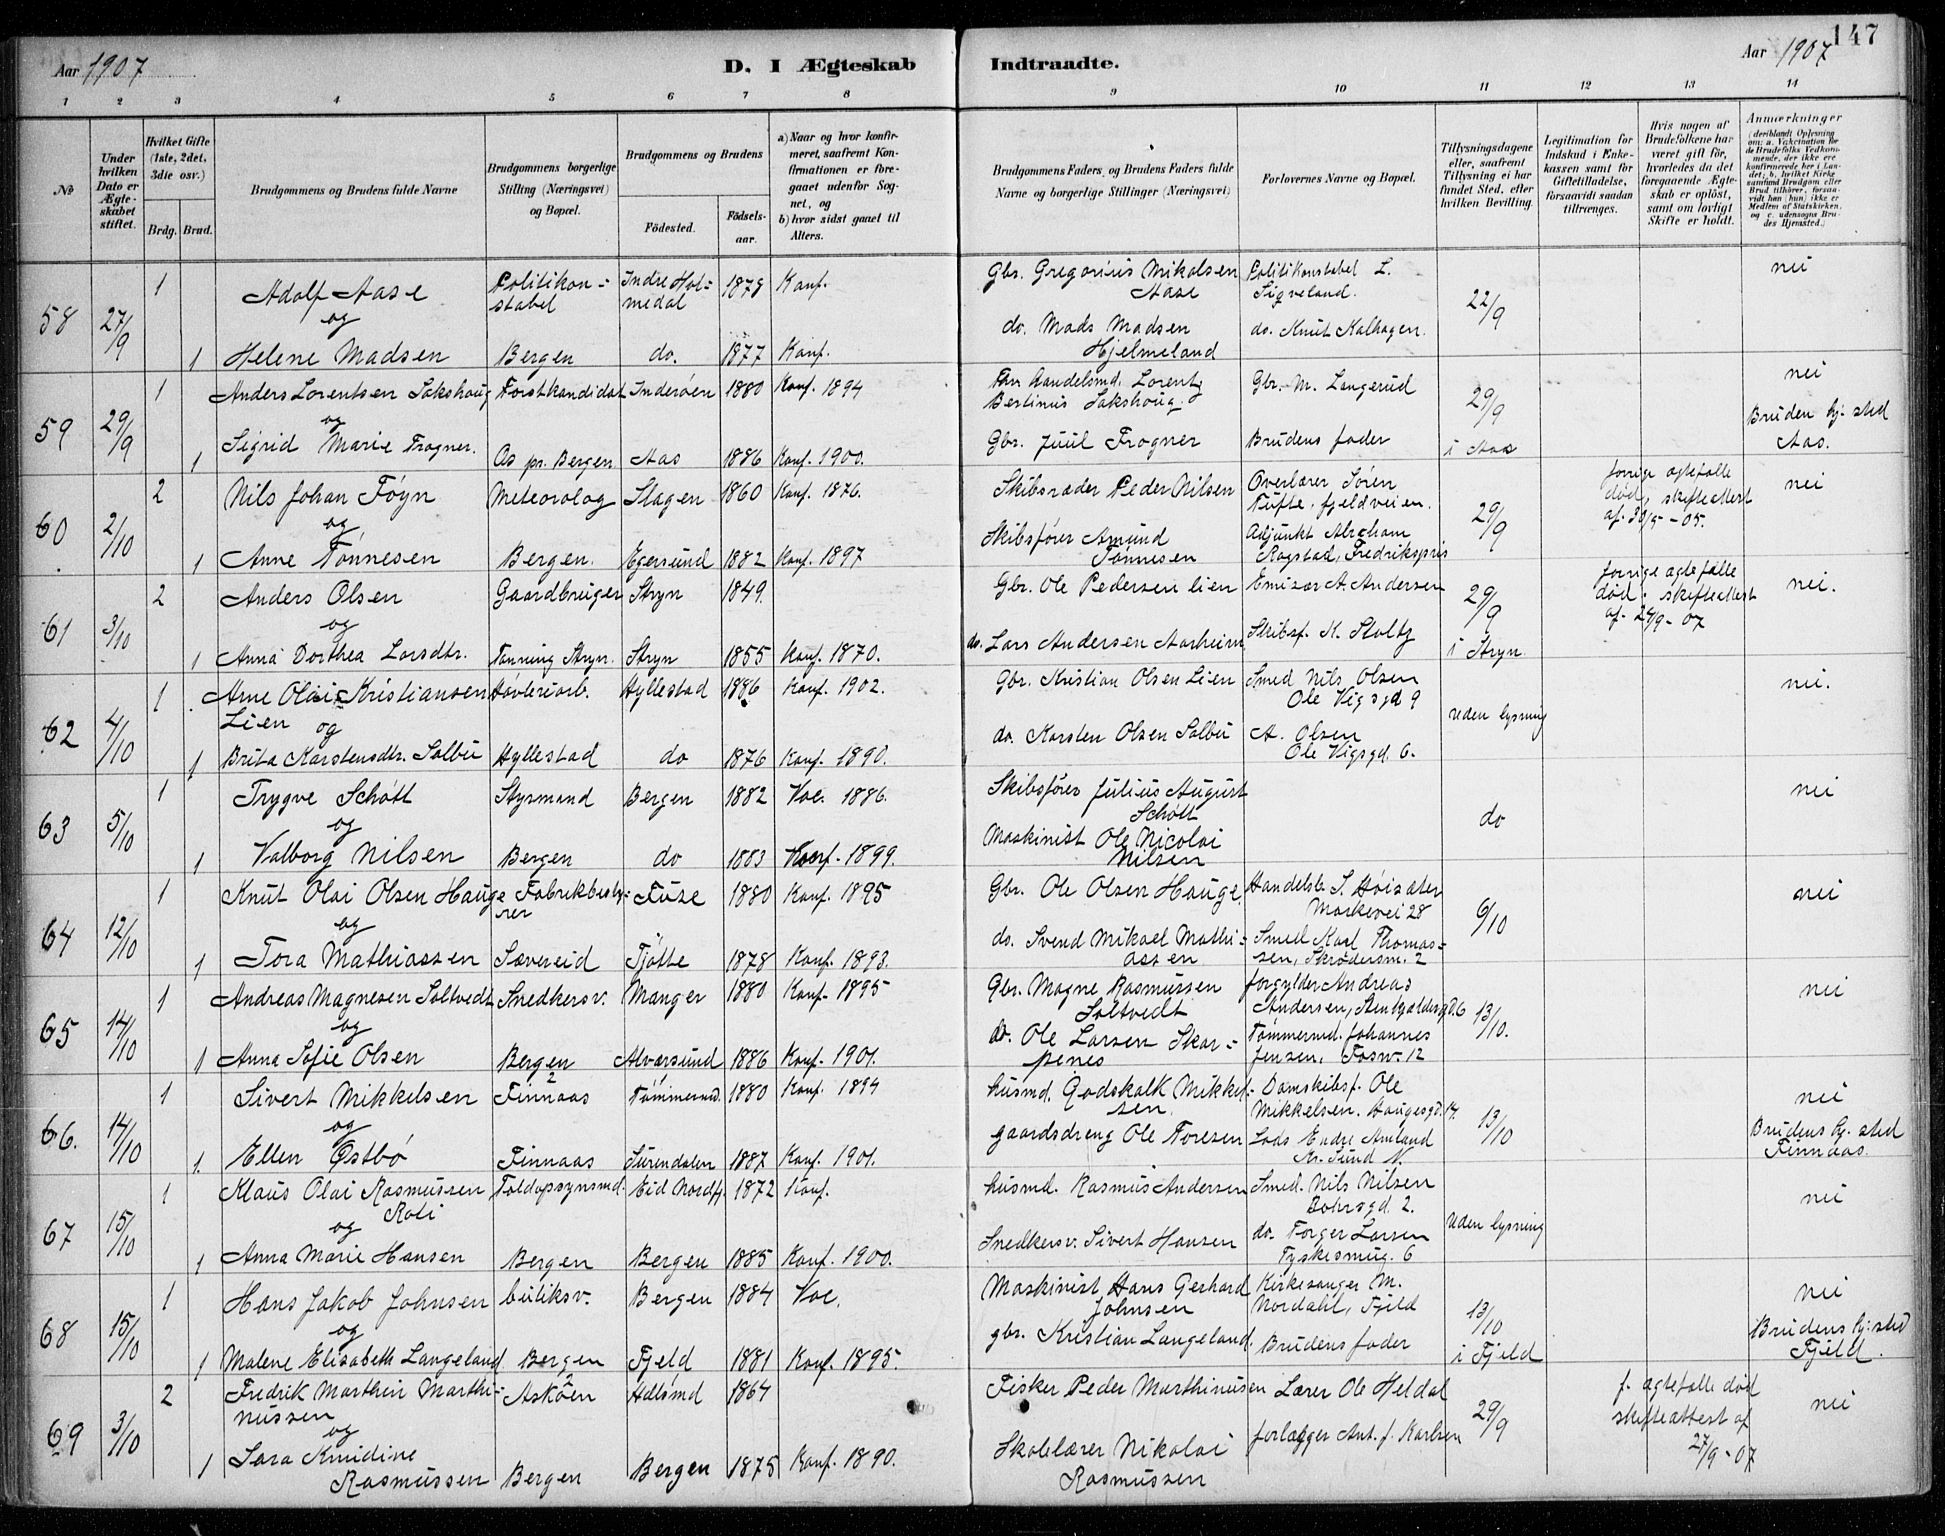 147
Aar 1907
D. I Ægteskab Indtraadte.
Aar 1907
1 2 3 4 5 6 7 8 9 10 11 12 13 14
№
Under hvilken Dato er Ægteskabet stiftet.
Hvilket Gifte (1ste, 2det, 3die osv.)
Brdg. Brud.
Brudgommens og Brudens fulde Navne
Brudgommens borgerlige Stilling (Næringsvei) og Bopæl.
Brudgommens og Brudens
Födested.
Födselsaar.
a) Naar og hvor konfirmeret, saafremt Konfirmationen er foregaaet udenfor Sognet, og
b) hvor sidst gaaet til Alters.
Brudgommens Faders og Brudens Faders fulde Navne og borgerlige Stillinger (Næringsvei)
Forlovernes Navne og Bopæl.
Tillysningsdagene eller, saafremt Tillysning ei har fundet Sted, efter hvilken Bevilling.
Legitimation for Indskud i Enkekassen samt for Giftetilladelse, forsaavidt saadan tiltrænges.
Hvis nogen af Brudefolkene har været gift før, hvorledes da det foregaaende Ægteskab er oplöst, samt om lovligt Skifte er holdt.
Anmærkninger
(deriblandt Oplysning om: a. Vakcination for de Brudefolks Vedkommende, der ikke ere konfirmerede her i Landet; b. hvilket Kirkesamfund Brudgom eller Brud tilhører, forsaavidt han (hun) ikke er Medlem af Statskirken, og c. udensogns Brudes Hjemsted.)
58 27/9 1 Adolf Aase Politikonstabel Indre Holmedal 1878 Konf. Gbr. Gregorius Mikalsen Aase Politikonstabel L. Sigveland. 22/9 nei
og
1 Helene Madsen Bergen do. 1877 Konf. do. Mads Madsen Hjelmeland do. Knut Kalhagen.
59 29/9 1 Anders Lorentsen Sakshaug Forstkandidat Inderøen 1880 Konf. 1894 Handelsmd. Lorentz Bertinus Sakshoug. Gbr. M. Langerud 29/9 i Aas nei
og
1 Sigrid Marie Frogner. Os pr. Bergen Aas 1886 Konf. 1900. Gbr. Juul Frogner Brudens fader Bruden hj. sted Aas.
60 2/10 2 Nils Johan Föyn Meteorolog Slagen 1860 Konf. 1876. Skibsreder Peder Nilsen Overlærer Sören Tufte, fjeldveien. 29/9 forrige ægtefælle död, skifteattest af 30/5-05. nei
og
1 Anne Tönnesen Bergen. Egersund 1882 Konf. 1897 Skibsfører Amund Tönnesen Adjunkt Abraham Rogstad, Fredrikspris
61 3/10 2 Anders Olsen Gaardbruger Stryn 1849. Gbr. Ole Pedersen Lien Emisær A. Andersen 29/9 i Stryn forrige ægtefælle död. skifteattest af 24/9-07 nei.
og
1 Anna Dorthea Larsdtr. Tonning Stryn. Stryn 1855 Konf. 1870. do. Lars Andersen Aarheim Skibsf. K. Stoltz
62 4/10 1 Arne Olai Kristiansen Lien Høvleriarb. Hyllestad 1886 Konf. 1902. Gbr. Kristian Olsen Lien Smed Nils Olsen Ole Vigsgd 9 uden lysning nei.
og
1 Brita Karstensdtr. Solbu Hyllestad do 1876 Konf. 1890. do. Karsten Olsen Solbu A. Olsen Ole Vigsgd. 6.
63 5/10 1 Trygve Schött Styrmand Bergen 1882 Vac. 1886. Skibsfører Julius August Schött do nei
og
1 Valborg Nilsen Bergen do 1883 Konf. 1899. Maskinist Ole Nicolai Nilsen
64 12/10 1 Knut Olai Olsen Hauge Fabrikbestyrer Fuse 1880 Konf. 1895 Gbr. Ole Olsen Hauge. Handelsb. S. Høisæter Markevei 28 6/10 nei
og
1 Tora Mathiassen Sævereid Tjötte 1878 Konf. 1893. do. Svend Mikael Mathiassen Smed Karl Thomassen, Skrödersm. 2
65 14/10 1 Andreas Magnesen Soltvedt Snedkersv. Manger 1880 Konf. 1895 Gbr. Magne Rasmussen Soltvedt forgylder Andreas Andersen, 13/10. nei
og
1 Anna Sofie Olsen Bergen Alversund 1886 Konf. 1901. do. Ole Larsen Skarpenes Tømmermd. Johannes Jensen, Fosw. 12
66. 14/10 1 Sivert Mikkelsen Finnaas Tömmermd. 1880 Konf. 1894 husmd. Godskalk Mikkelsen. Damskibsf. Ole Mikkelsen. Haugesgd. 14. 13/10 nei
og
1. Ellen Østbö Finnaas Surendalen 1887 Konf. 1901. gaardsdreng Ole Toresen Lods Endre Amland Kr. Sund N. Brudens hj. sted Finnaas.
67 15/10 1 Klaus Olai Rasmussen Roti Toldopsynsmd. Eid Nordfj. 1872 Konf. husmd. Rasmus Andersen Smed. Nils Nilsen Dohrsgd. 2. uden lysning nei
og
1 Anna Marie Hansen Bergen Bergen 1885 Konf. 1900. Snedkersv. Sivert Hansen do. Torger Larsen Tyskesmug. 6
68 15/10 1 Hans Jakob Johnsen butiksv. Bergen 1884 Vac. Maskinist Hans Gerhard Johnsen Kirkesanger M. Nordahl, Fjeld 13/10 i Fjeld nei
og
1 Malene Elisabeth Langeland Bergen Fjeld 1881 Konf. 1895. gbr. Kristian Langeland. Brudens fader Brudens hj. sted Fjeld.
69 3/10 2 Fredrik Marthin Marthinussen Asköen Hdlsmd 1864 Fisker Peder Marthinusen Lærer Ole Heldal 29/9 f. ægtefælle död skifteattest af 27/9-07 nei
og
1 Sara Knudine Rasmussen Bergen Bergen 1875 Konf. 1890. Skolelærer Nikolai Rasmussen forlægger Ant. J. Karlsen